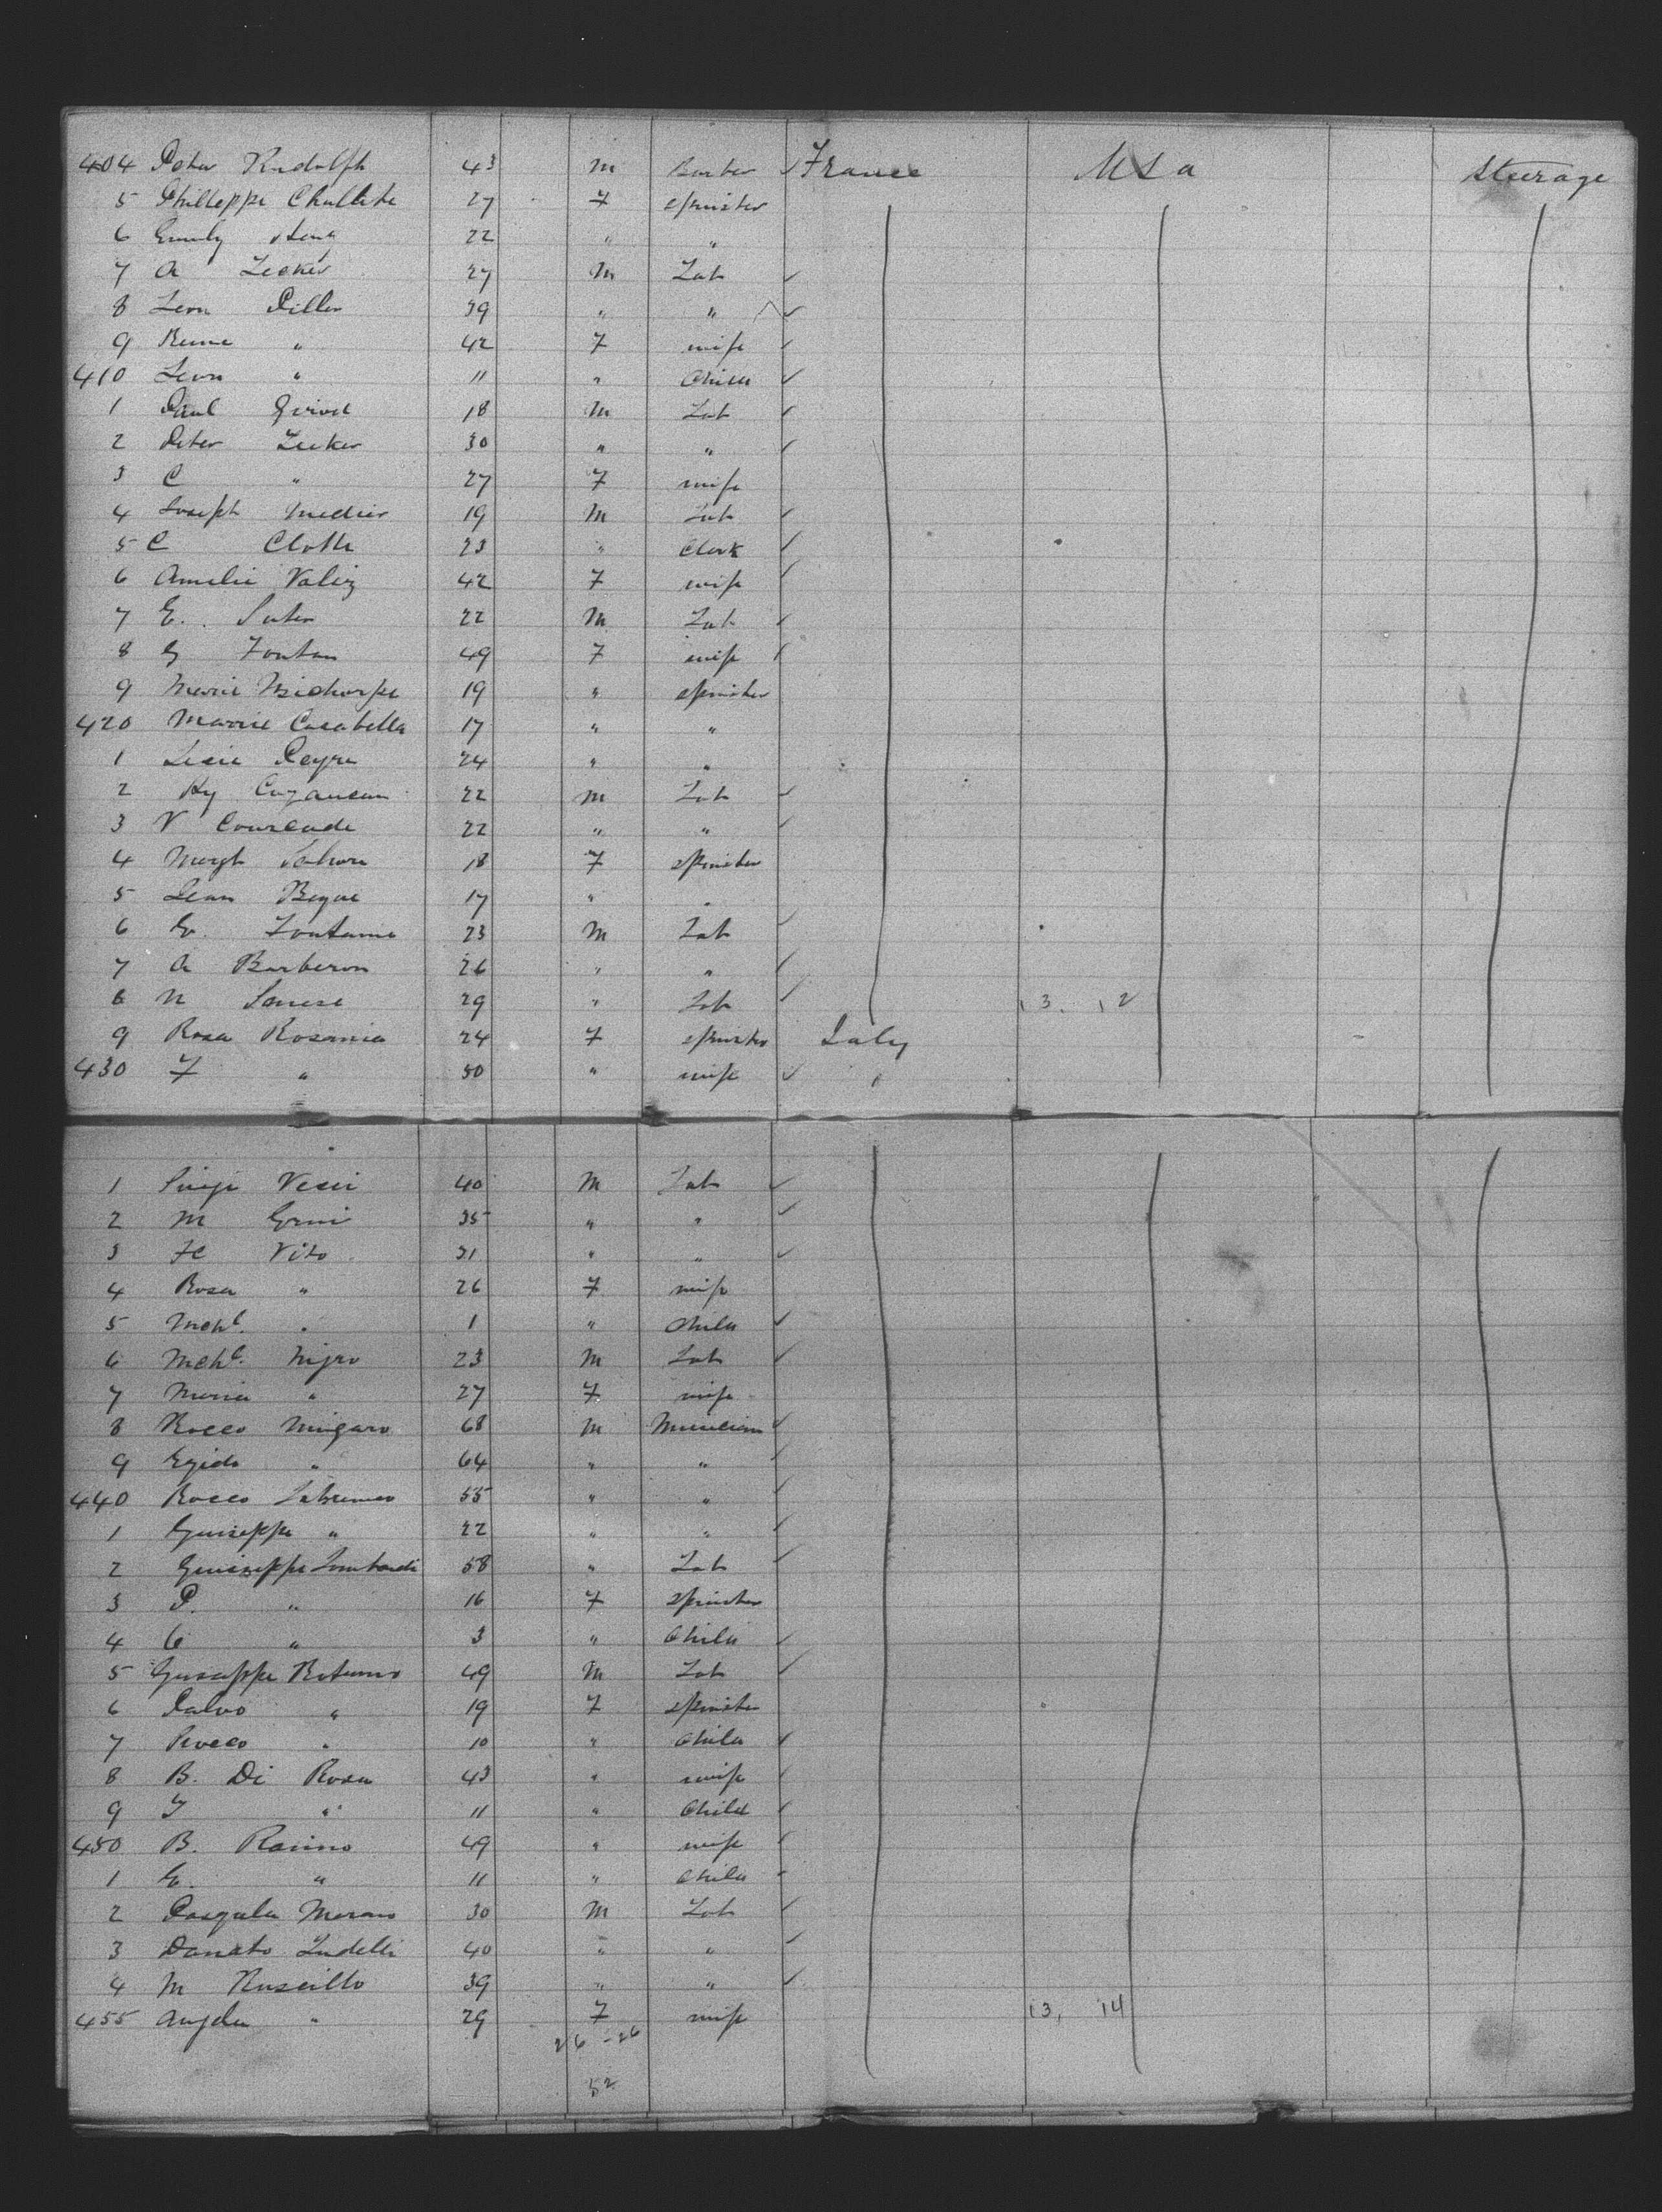 404 Peter Rudolph 43 M Barber ✓ France USa Steerage
5 Philleppe Challete 27 F Spinster
6 Emily 22 " "
7 A Lecker 27 M Lab ✓
8 Leon Piller 39 " " ✓
9 Reine " 42 F wife ✓
410 Leon " 11 " Child ✓
1 Paul Girod 18 M Lab ✓
2 Peter Lecker 30 " " ✓
3 C " 27 F wife
4 Joseph Medier 19 M Lab ✓
5 C Clotte 23 " Clerk ✓
6 Amelie Valez 42 F wife ✓
7 E. Suter 22 M Lab ✓
8 G Fontan 49 F wife ✓
9 Marie 19 " Spinster
420 Marrie Casabella 17 " "
1 Peyre 24 " "
2 Hy 22 M Lab ✓
3 V Courcade 22 " " ✓
4 Margt 18 F Spinster
5 Jean Begue 17 " "
6 G. Fontaine 23 M Lab ✓
7 A Barberon 26 " " ✓
8 N 29 " Lab ✓ 13. 12
9 Rosa Rosania 24 F Spinster Italy
430 F " 50 " wife ✓ "
1 Luigi Vecci 40 M Lab ✓
2 M 35 " " ✓
3 Vito 31 " " ✓
4 Rosa " 26 F wife
5 Mchl. " 1 " Child ✓
6 Mchl. Nigro 23 M Lab ✓
7 Maria " 27 F wife
8 Rocco Mingaro 68 M Musician ✓
9 Egido " 64 " " ✓
440 Rocco 55 " " ✓
1 Guiseppe " 22 " " ✓
2 Guiseppe Lombardi 58 " Lab ✓
3 P. " 16 F Spinster
4 C " 3 " Child ✓
5 Guseppe Rotunno 49 M Lab ✓
6 " 19 F Spinster
7 Rocco " 10 " Child ✓
8 B. Di Rosa 43 " wife ✓
9 " 11 " Child ✓
450 B. 49 " wife ✓
1 G. " 11 " Child ✓
2 Pasqula Morano 30 M Lab ✓
3 Danato 40 " " ✓
4 M Ruscillo 39 " " ✓
455 Angela " 29 F wife 13, 14
26 - 26
52